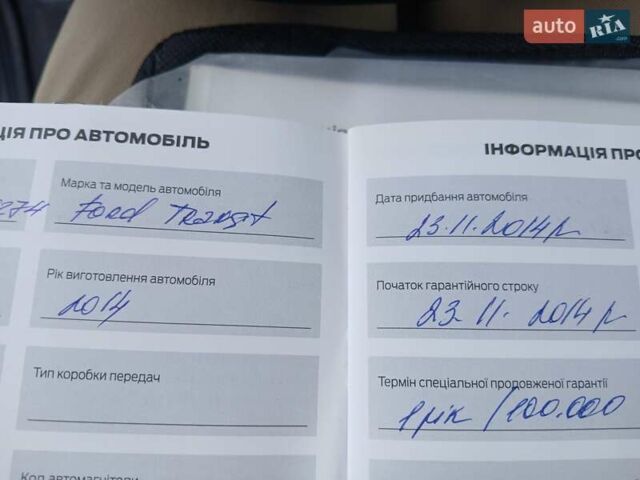 auto RIA
.com
ЦІЯ ПРО АВТОМОБІЛЬ
Марка та модель автомобіля
Ford Transit
Рік виготовлення автомобіля
2014
Тип коробки передач
Код автомагнітоли
ІНФОРМАЦІЯ ПРО
Дата придбання автомобіля
23.11.2014р
Початок гарантійного строку
23.11.2014р
Термін спеціальної продовженої гарантії
1 рік / 100.000